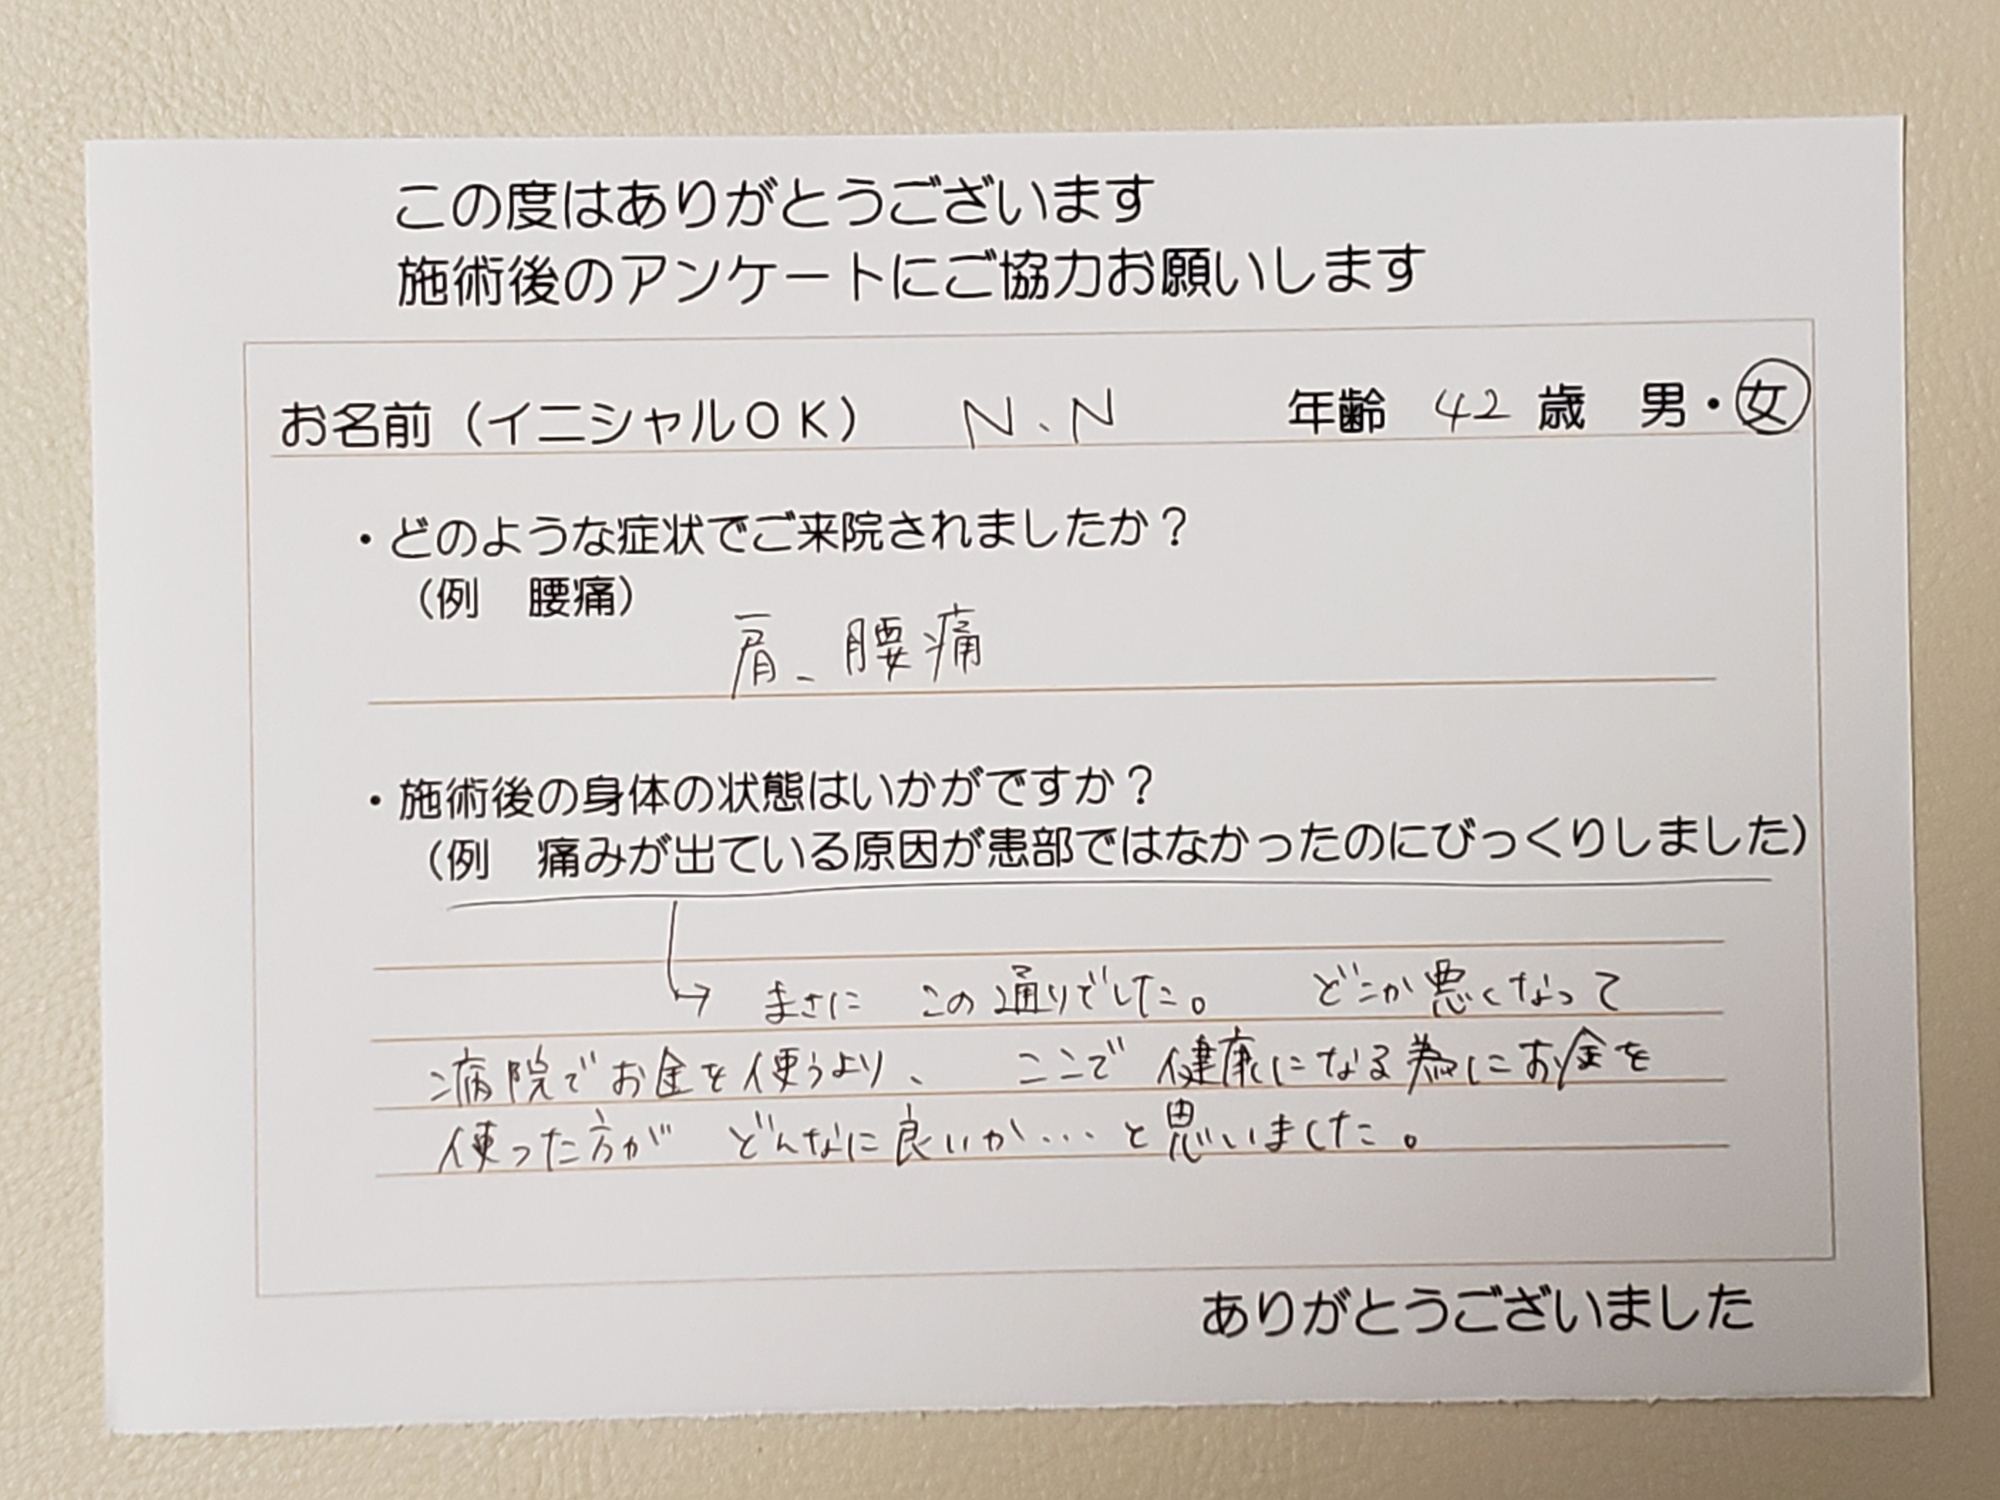 この度はありがとうございます
施術後のアンケートにご協力お願いします
お名前（イニシャルＯＫ） N.N 年齢 42 歳 男・女
・どのような症状でご来院されましたか？
（例　腰痛）
肩、腰痛
・施術後の身体の状態はいかがですか？
（例　痛みが出ている原因が患部ではなかったのにびっくりしました）
→ まさに この通りでした。 どこか悪くなって
病院でお金を使うより、 ここで 健康になる為にお金を
使った方が どんなに良いか…と思いました。
ありがとうございました